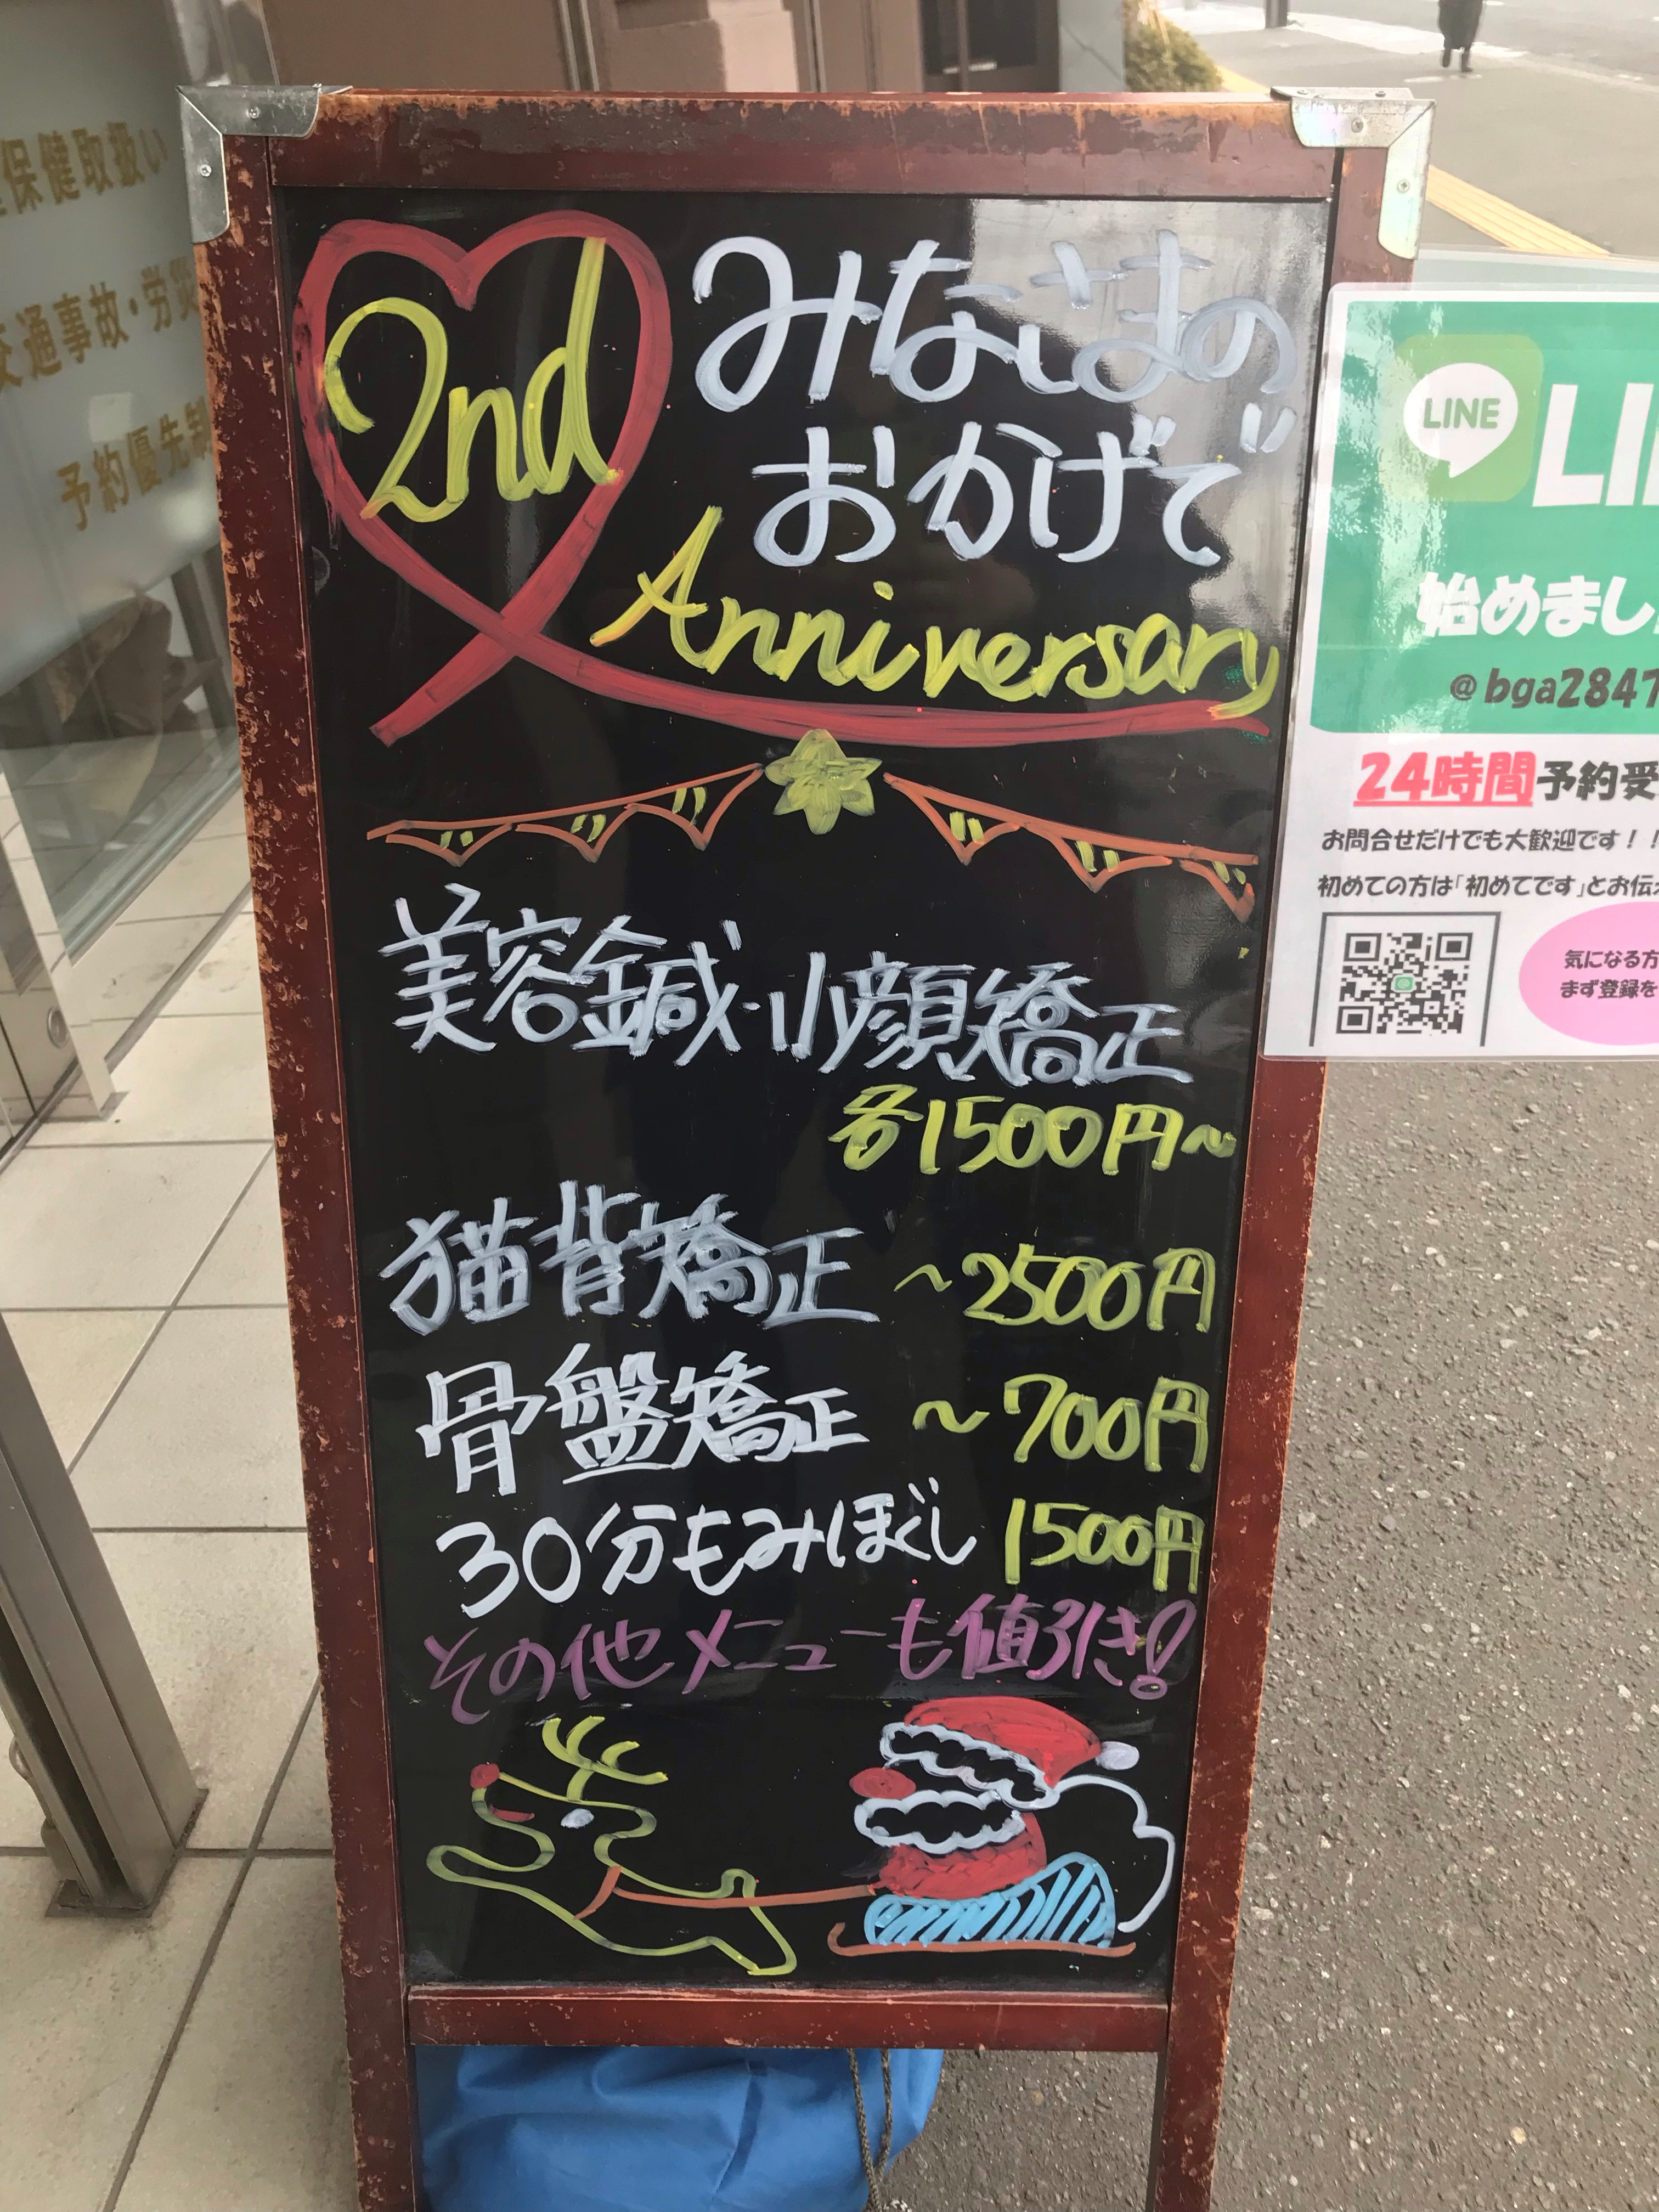 保健取扱い
交通事故・労災
予約優先制
2nd
みなさまの
おかげで
Anniversary
美容鍼・小顔矯正
各1500円~
猫背矯正 ~2500円
骨盤矯正 ~700円
30分もみほぐし 1500円
その他メニューも値引き!
LINE
LI
始めまし
@bga2847
24時間予約受
お問合せだけでも大歓迎です!!
初めての方は「初めてです」とお伝え
気になる方
まず登録を